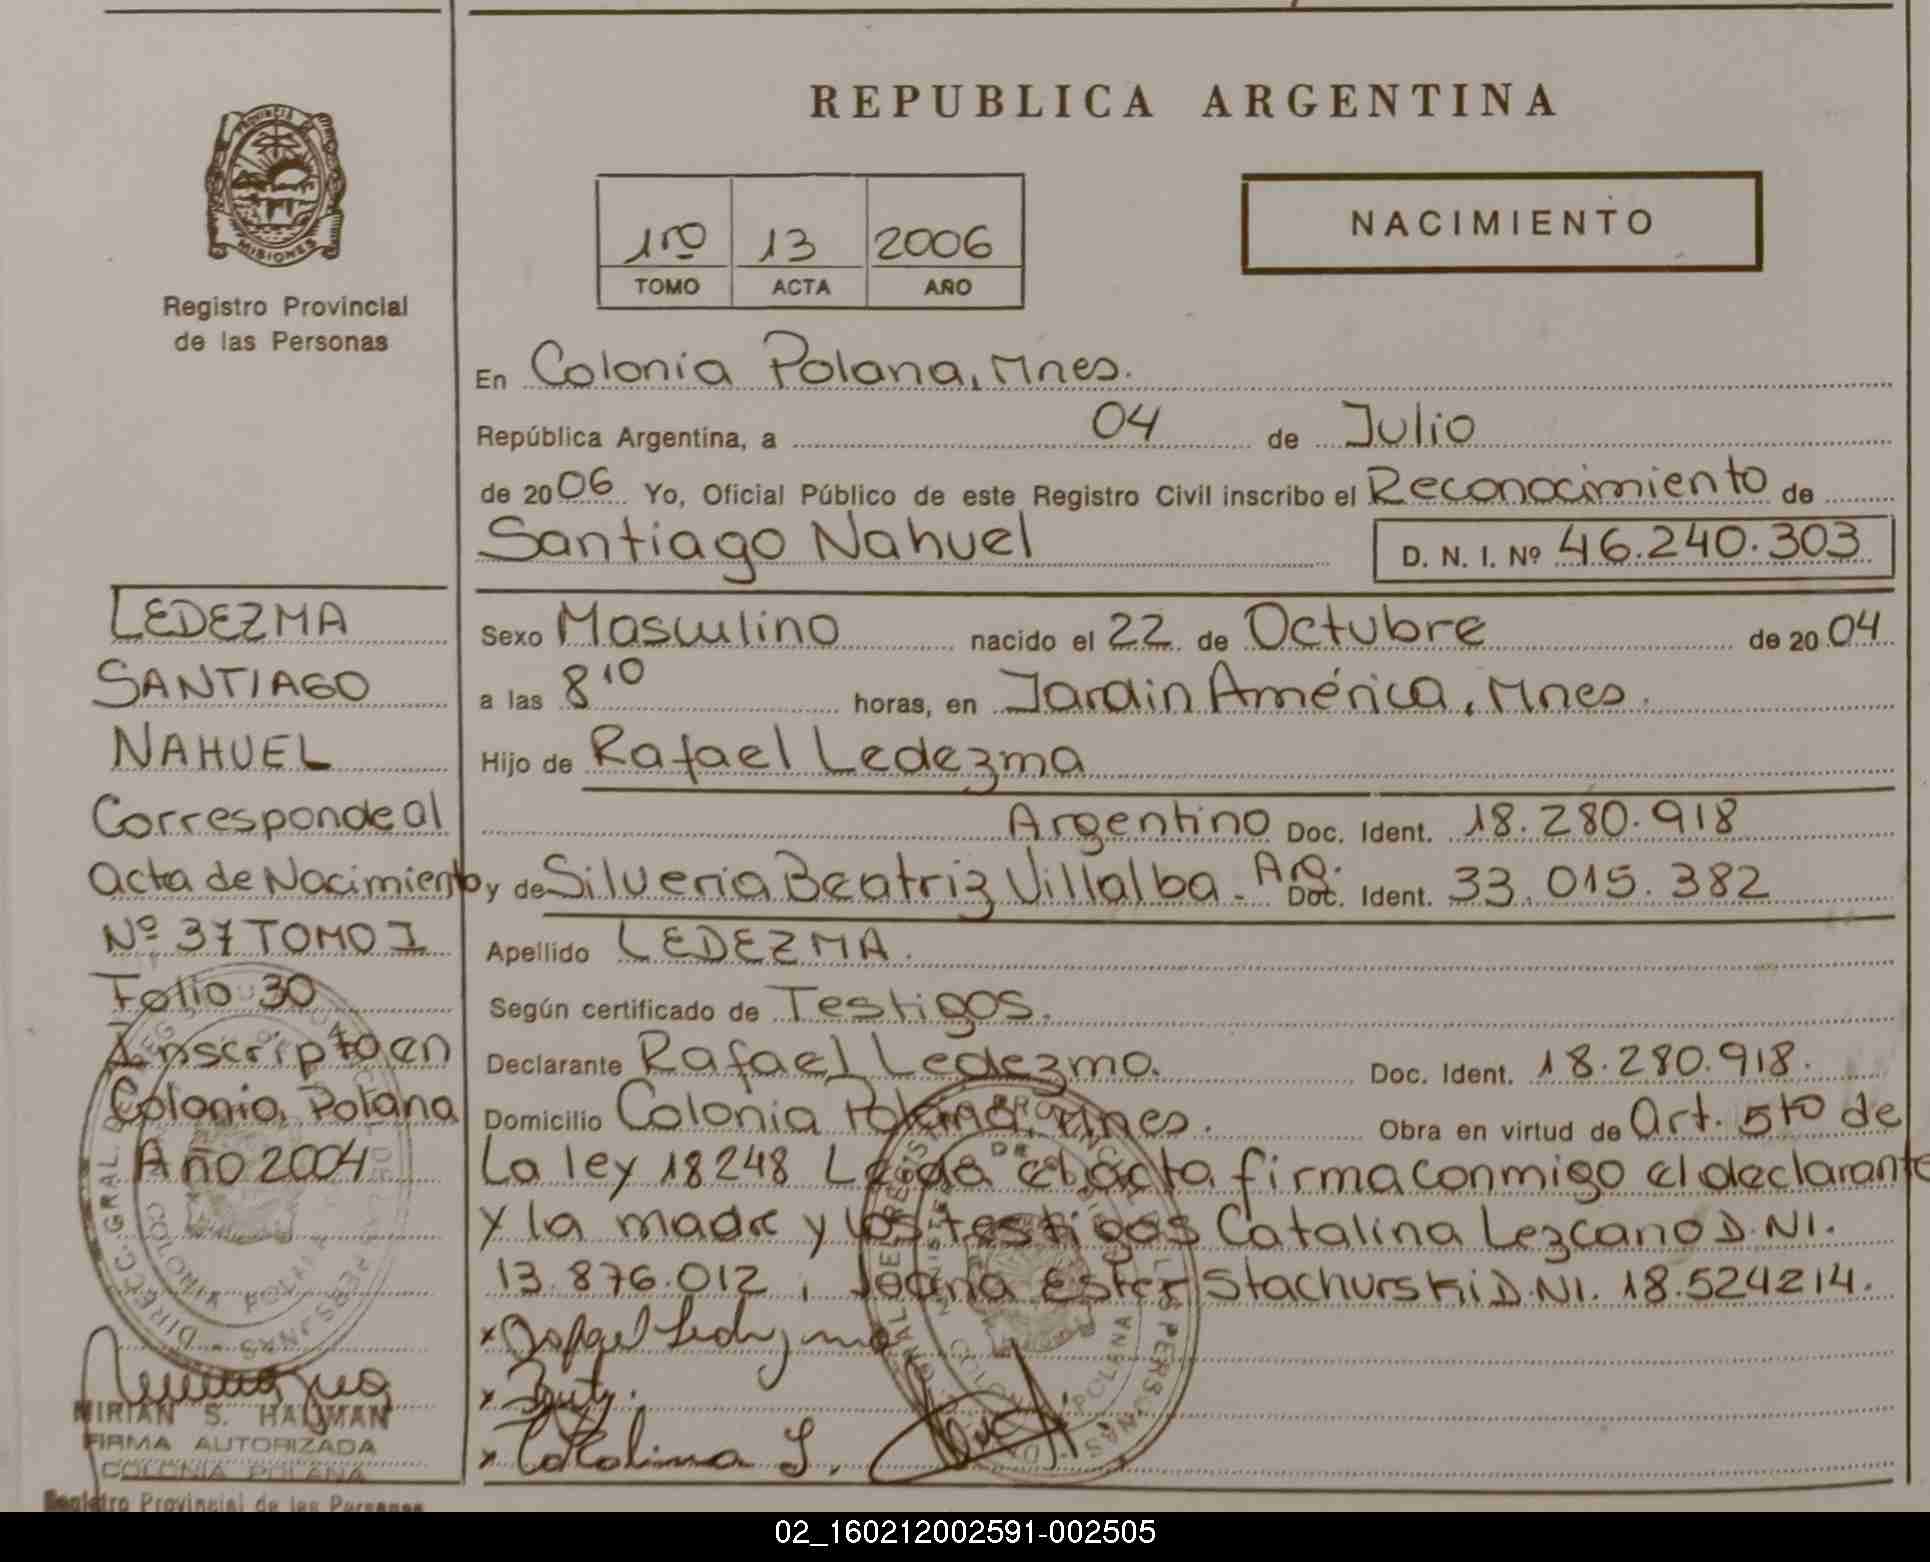 REPUBLICA ARGENTINA
PROVINCIA DE
MISIONES
Registro Provincial
de las Personas
1ro 13 2006
TOMO ACTA AÑO
NACIMIENTO
En Colonia Polana, Mnes.
República Argentina, a 04 de Julio
de 2006 Yo, Oficial Público de este Registro Civil inscribo el Reconocimiento de
Santiago Nahuel D. N. I. Nº 46.240.303
Sexo Masculino nacido el 22 de Octubre de 2004
a las 8 10 horas, en Jardin América, Mnes.
Hijo de Rafael Ledezma
Argentino Doc. Ident. 18.280.918
y de Silveria Beatriz Villalba - Arg. Doc. Ident. 33.015.382
Apellido LEDEZMA.
Según certificado de Testigos.
Declarante Rafael Ledezma. Doc. Ident. 18.280.918.
Domicilio Colonia Polana, Mnes. Obra en virtud de Art. 5to de
La ley 18248 Leida el acta firma conmigo el declarante
y la madre y los testigos Catalina Lezcano D.NI.
13.876.012, Joana Ester Stachurski D.NI. 18.524214.
x Rafael Ledezma
x
x Catalina L.
LEDEZMA
SANTIAGO
NAHUEL
Corresponde al
acta de Nacimiento
Nº 37 TOMO I
Folio 30
Inscripto en
Colonia Polana
Año 2004
DIRECC. GRAL. DEL REG. PERSONAS
COLONIA POLANA
MIRIAN S. HALMAN
FIRMA AUTORIZADA
COLONIA POLANA
Registro Provincial de las Personas
02_160212002591-002505